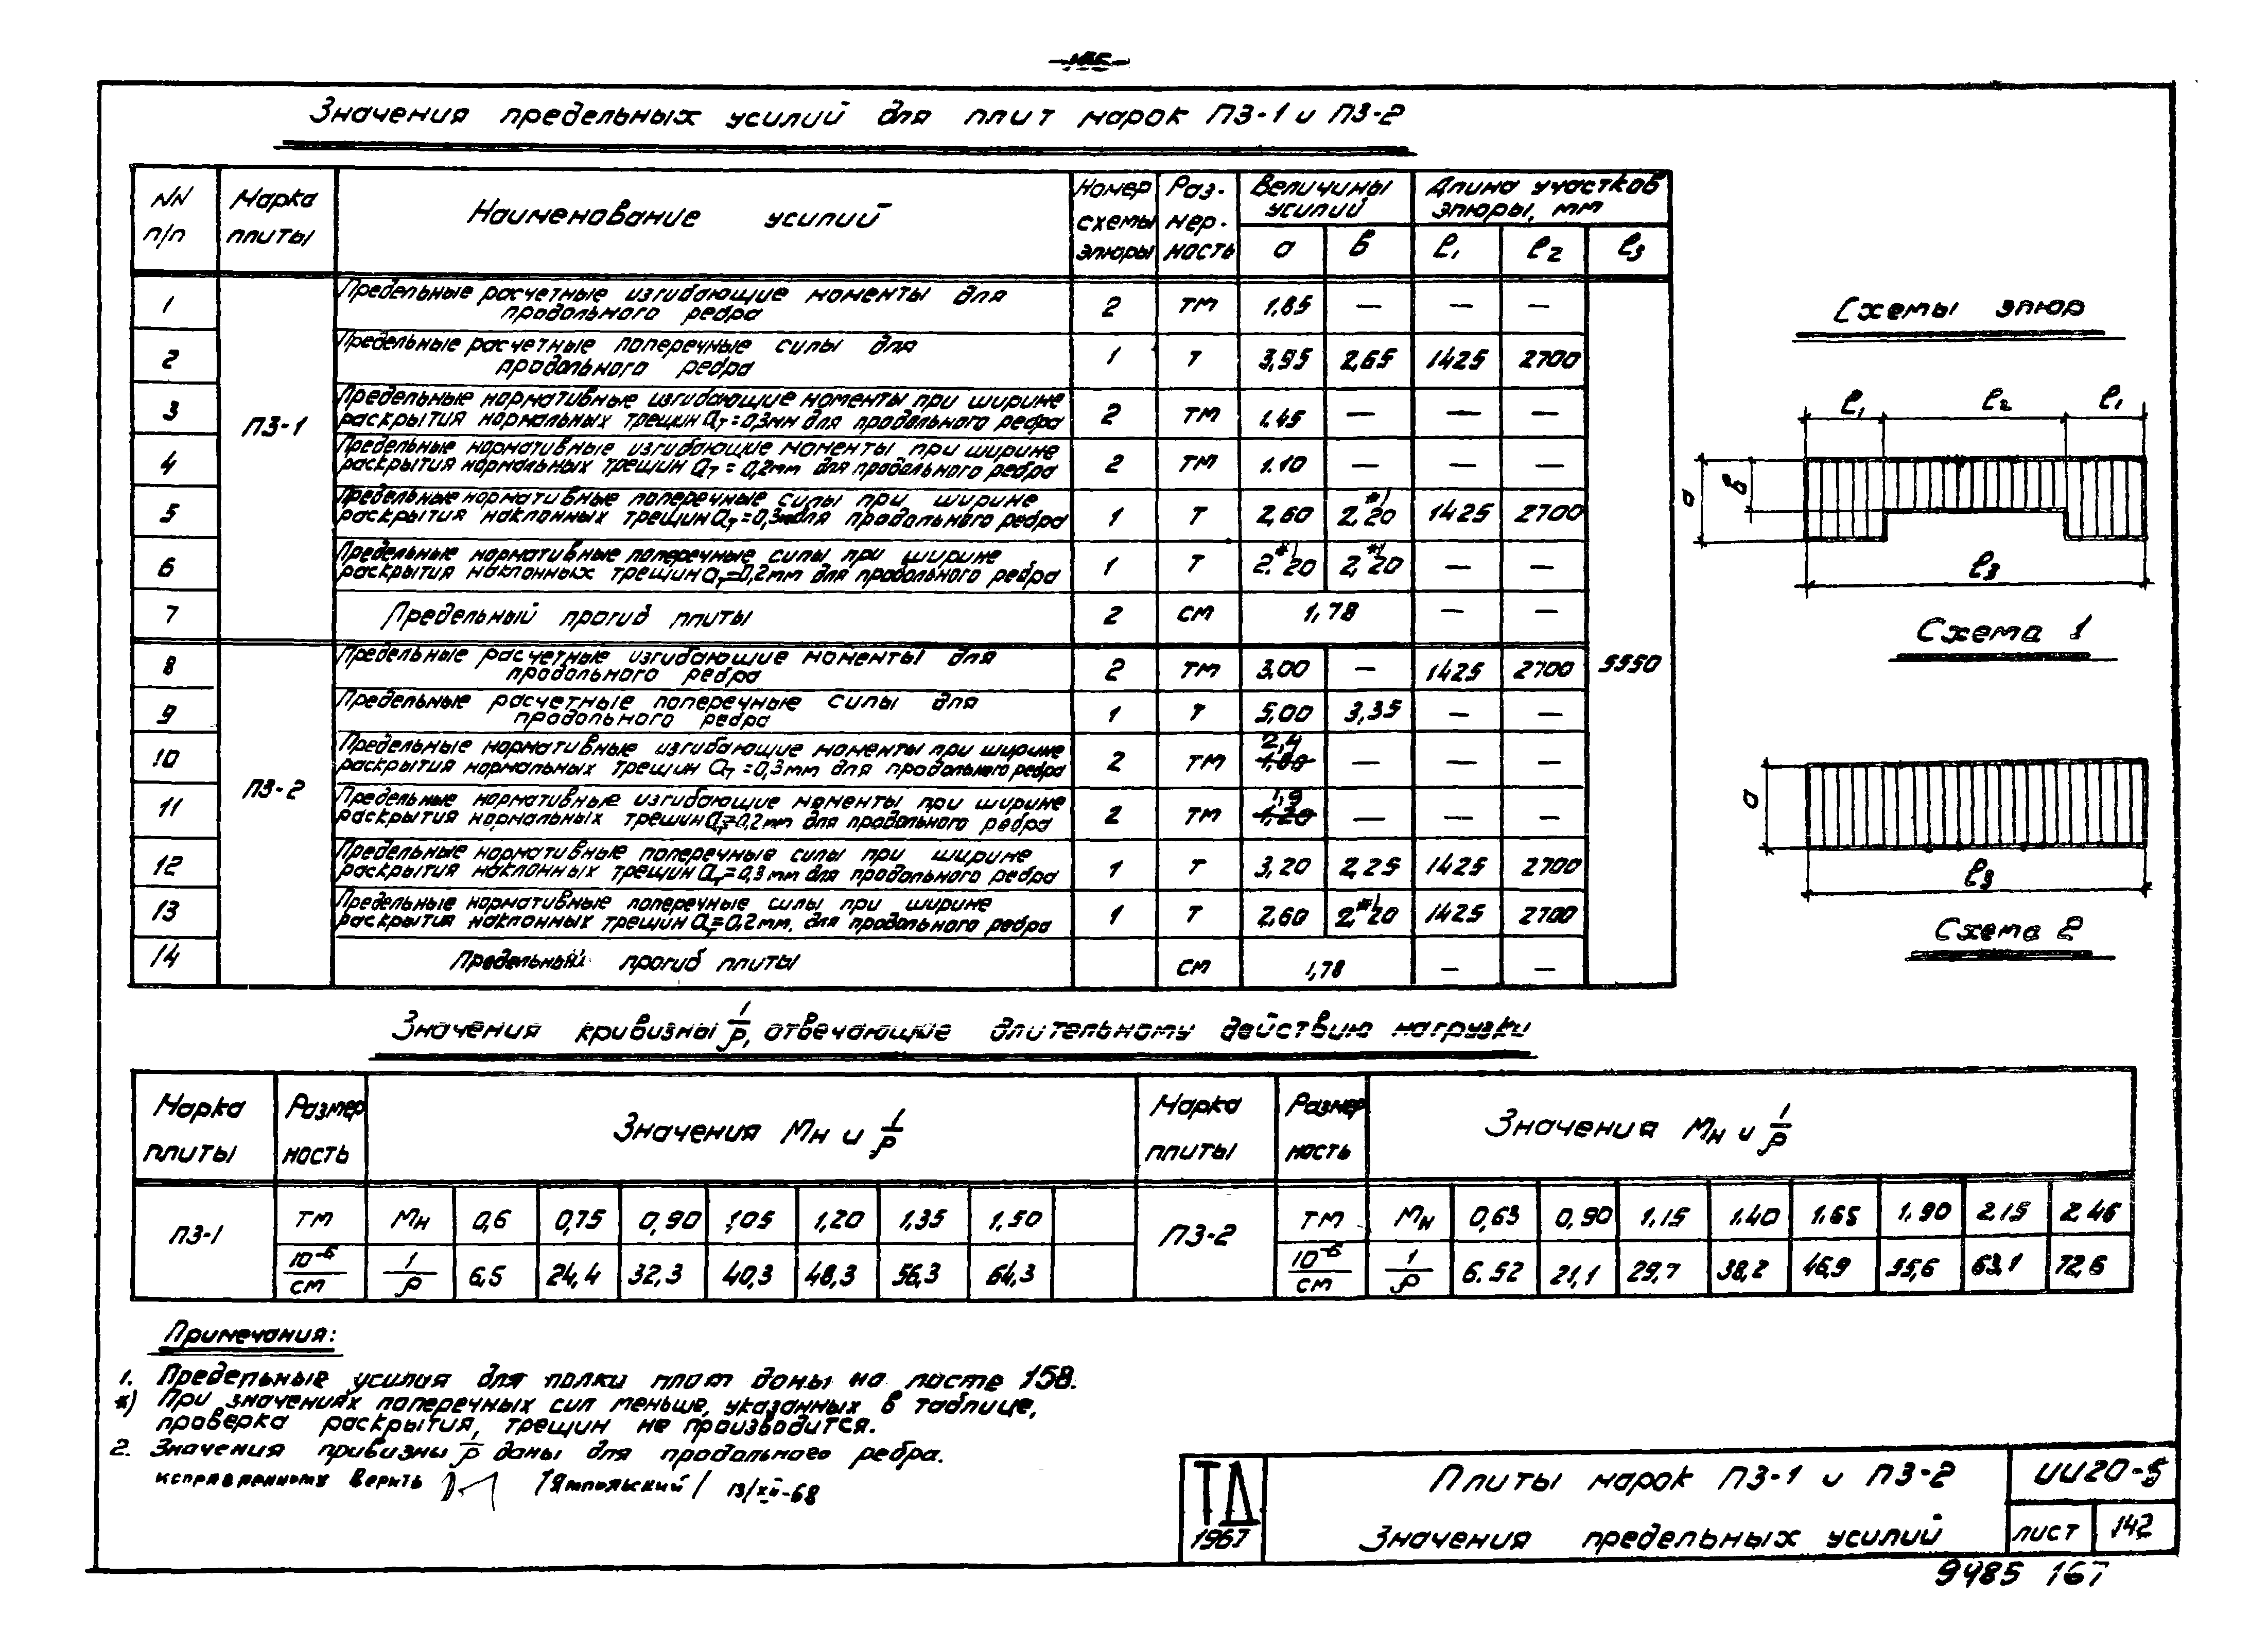 Значения предельных усилий для плит марок ПЗ-1 и ПЗ-2
NN п/п | Марка плиты | Наименование усилий | Номер схемы эпюры | Раз-мер-ность | Величины усилий | Длина участков эпюры, мм
а | в | ℓ₁ | ℓ₂ | ℓ₃
1 | ПЗ-1 | Предельные расчетные изгибающие моменты для продольного ребра | 2 | тм | 1.85 | — | — | — | 5550
2 | Предельные расчетные поперечные силы для продольного ребра | 1 | т | 3,95 | 2,65 | 1425 | 2700
3 | Предельные нормативные изгибающие моменты при ширине раскрытия нормальных трещин aт = 0,3мм для продольного ребра | 2 | тм | 1.45 | — | — | —
4 | Предельные нормативные изгибающие моменты при ширине раскрытия нормальных трещин aт = 0,2мм для продольного ребра | 2 | тм | 1.10 | — | — | —
5 | Предельные нормативные поперечные силы при ширине раскрытия наклонных трещин aт = 0,3мм для продольного ребра | 1 | т | 2,60 | 2,20 *) | 1425 | 2700
6 | Предельные нормативные поперечные силы при ширине раскрытия наклонных трещин aт = 0,2мм для продольного ребра | 1 | т | 2.20 *) | 2,20 *) | — | —
7 | Предельный прогиб плиты | 2 | см | 1,78 | — | —
8 | ПЗ-2 | Предельные расчетные изгибающие моменты для продольного ребра | 2 | тм | 3,00 | — | 1425 | 2700
9 | Предельные расчетные поперечные силы для продольного ребра | 1 | т | 5,00 | 3,35 | — | —
10 | Предельные нормативные изгибающие моменты при ширине раскрытия нормальных трещин aт = 0,3мм для продольного ребра | 2 | тм | 2,4 | — | — | —
11 | Предельные нормативные изгибающие моменты при ширине раскрытия нормальных трещин aт = 0,2мм для продольного ребра | 2 | тм | 1,9 | — | — | —
12 | Предельные нормативные поперечные силы при ширине раскрытия наклонных трещин aт = 0,3мм для продольного ребра | 1 | т | 3,20 | 2,25 | 1425 | 2700
13 | Предельные нормативные поперечные силы при ширине раскрытия наклонных трещин aт = 0,2мм. для продольного ребра | 1 | т | 2,60 | 2,20 *) | 1425 | 2700
14 | Предельный прогиб плиты | см | 1,78 | — | —
Схемы эпюр
ℓ₁ ℓ₂ ℓ₁
а в
ℓ₃
Схема 1
а
ℓ₃
Схема 2
Значения кривизны 1/ρ, отвечающие длительному действию нагрузки
Марка плиты | Размерность | Значения Мн и 1/ρ | Марка плиты | Размерность | Значения Мн и 1/ρ
ПЗ-1 | тм | Мн | 0,6 | 0,75 | 0,90 | 1,05 | 1,20 | 1,35 | 1,50 | ПЗ-2 | тм | Мн | 0,63 | 0,90 | 1,15 | 1.40 | 1.65 | 1,90 | 2,15 | 2,46
10⁻⁶/см | 1/ρ | 6,5 | 24,4 | 32,3 | 40,3 | 48,3 | 56,3 | 64,3 | 10⁻⁶/см | 1/ρ | 6.52 | 21,1 | 29,7 | 38,2 | 46,9 | 55,6 | 63,1 | 72,6
Примечания:
1. Предельные усилия для полки плит даны на листе 158.
*) При значениях поперечных сил меньше, указанных в таблице,
проверка раскрытия, трещин не производится.
2. Значения кривизны 1/ρ даны для продольного ребра.
исправленному верить /Ямпольский/ 13/XII-68
ТД
1967
Плиты марок ПЗ-1 и ПЗ-2
Значения предельных усилий
ИИ20-5
лист 142
9485 167